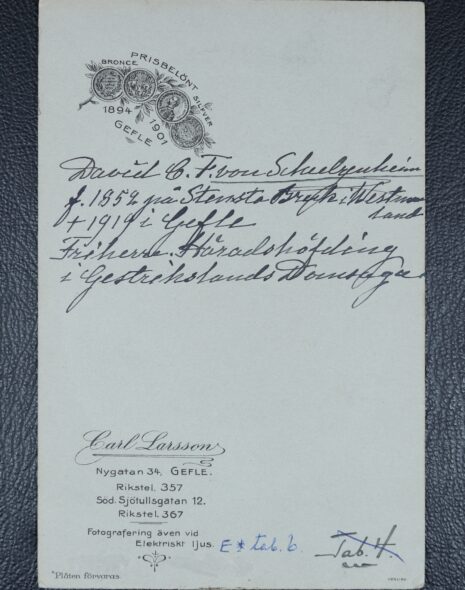 PRISBELÖNT
BRONCE SILFVER
1894 1901
GEFLE
David C. F. von Schulzenheim
f. 1852 på Stensta Bruk i Westman
land
+ 1919 i Gefle
Friherre. Häradshöfding
i Gestriklands Domsaga
Carl Larsson
Nygatan 34, GEFLE.
Rikstel. 357
Söd. Sjötullsgatan 12.
Rikstel. 367
Fotografering även vid
Elektriskt ljus.
E * tab. 6.
Tab. H.
Plåten förvaras.